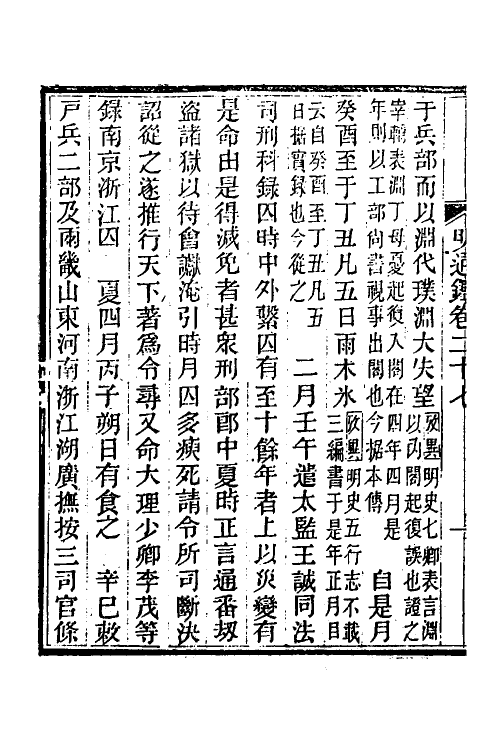 明通鑑卷二十七 一
于兵部而以淵代璞淵大失望 攷異明史七卿表言淵以內閣起復誤也證之
宰輔表淵丁母憂起復入閣在四年四月是年則以工部尚書視事出閣也今據本傳 自是月
癸酉至于丁丑凡五日雨木氷 攷異明史五行志不載三編書于是年正月目
云自癸酉至丁丑凡五日据實錄也今從之 二月壬午遣太監王誠同法
司刑科錄囚時中外繫囚有至十餘年者上以災變有
是命由是得減免者甚眾刑部郎中夏時正言通番刼
盜諸獄以待會讞淹引時月囚多瘐死請令所司斷決
詔從之遂推行天下著爲令尋又命大理少卿李茂等
錄南京浙江囚 夏四月丙子朔日有食之 辛巳敕
戸兵二部及兩畿山東河南浙江湖廣撫按三司官條